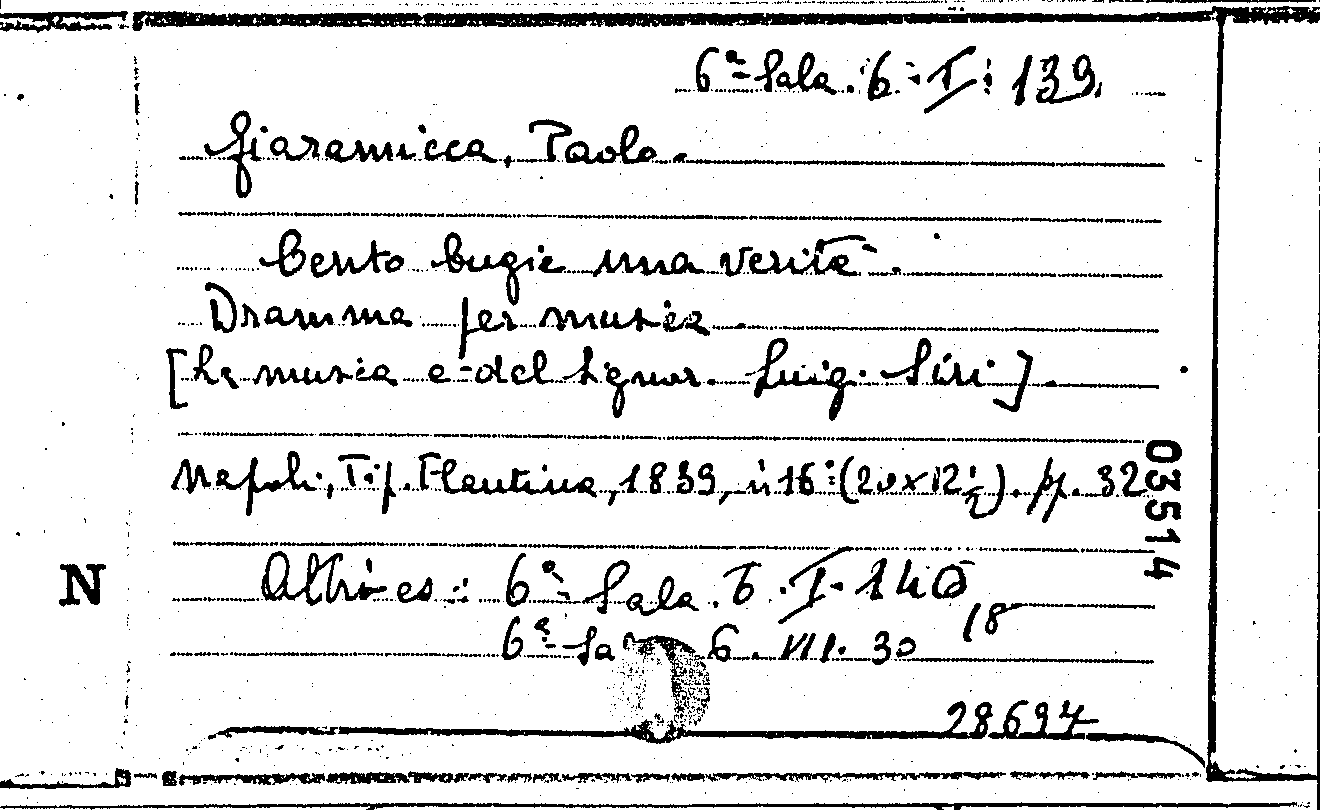 6ª Sala. 6. I. 139.
Giaramicca, Paolo.
Cento bugie una verità.
Dramma per musica.
[La musica e del Signor. Luig. Siri].
Napoli, Tip. Flautina, 1839, in 16º (20x12½). pp. 32
03514
N
Altri es: 6ª Sala. 6. I. 140
18
6ª Sa 6. VII. 30
28694